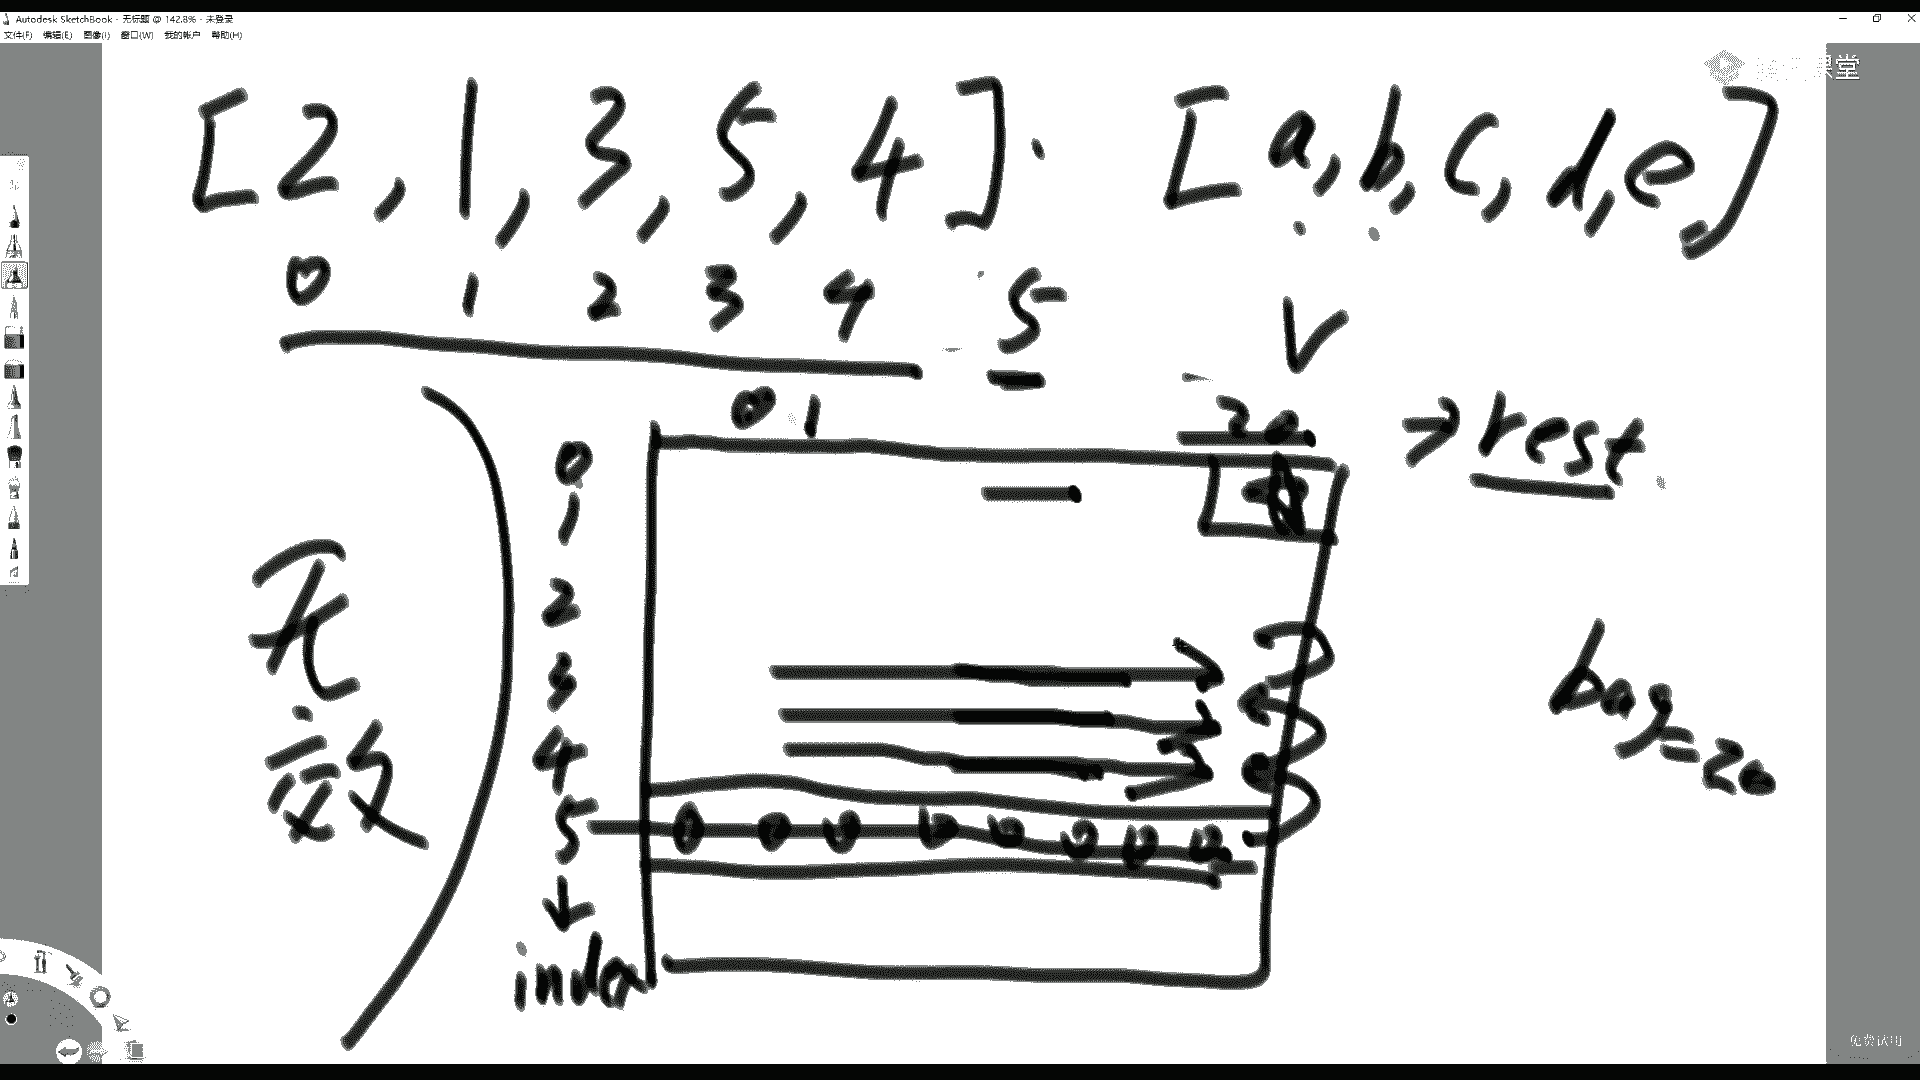 Autodesk SketchBook - 无标题 @ 142.8% - 未登录
文件(F) 编辑(E) 图像(I) 窗口(W) 我的帐户 帮助(H)
课堂
[2, 1, 3, 5, 4] [a, b, c, d, e]
0 1 2 3 4 5
0 1 20 → rest
0
1
2
3
4
5 0 0 0 0 0 0 0 0
index
无效
bag=20
免费试用